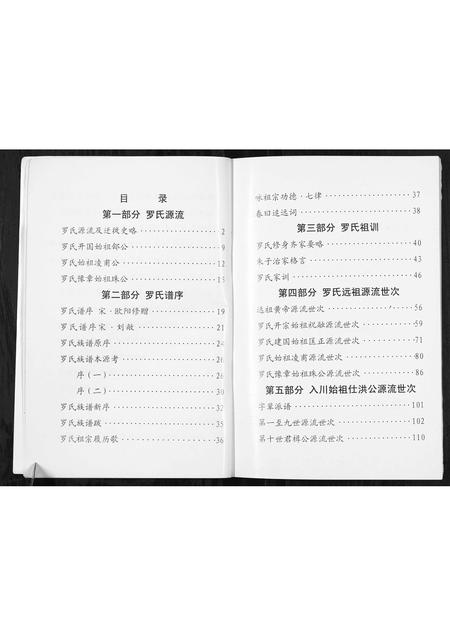 目 录
第一部分 罗氏源流
罗氏源流及迁徙史略 2
罗氏开国始祖郐公 9
罗氏始祖凌甫公 12
罗氏豫章始祖珠公 13
第二部分 罗氏谱序
罗氏谱序 宋·欧阳修赠 19
罗氏谱序 宋·刘敞 21
罗氏族谱原序 24
罗氏族谱本源考 26
序(一) 26
序(二) 30
罗氏族谱新序 32
罗氏族谱跋 35
罗氏祖宗履历歌 36
咏祖宗功德·七律 37
春日述选词 38
第三部分 罗氏祖训
罗氏修身齐家要略 40
朱子治家格言 43
罗氏家训 46
第四部分 罗氏远祖源流世次
远祖黄帝源流世次 56
罗氏开宗始祖祝融源流世次 59
罗氏建国始祖匡正源流世次 71
罗氏始祖凌甫源流世次 80
罗氏豫章始祖珠公源流世次 86
第五部分 入川始祖仕洪公源流世次
字辈派语 101
第一至九世源流世次 102
第十世君楫公源流世次 110